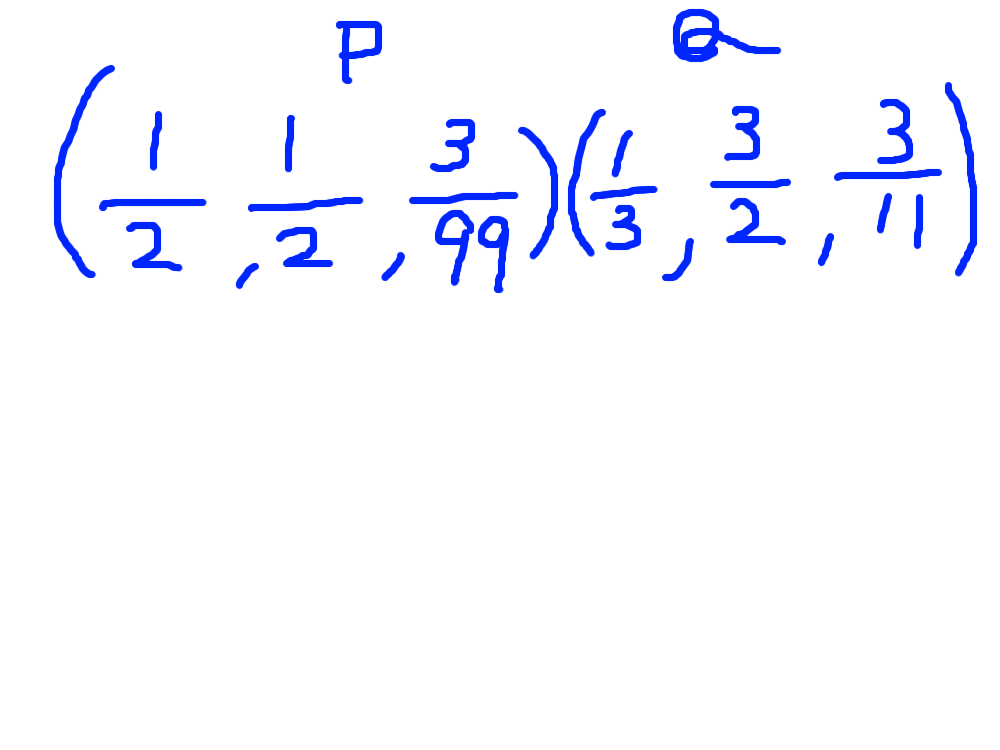 P Q
(1/2, 1/2, 3/99)(1/3, 3/2, 3/11)